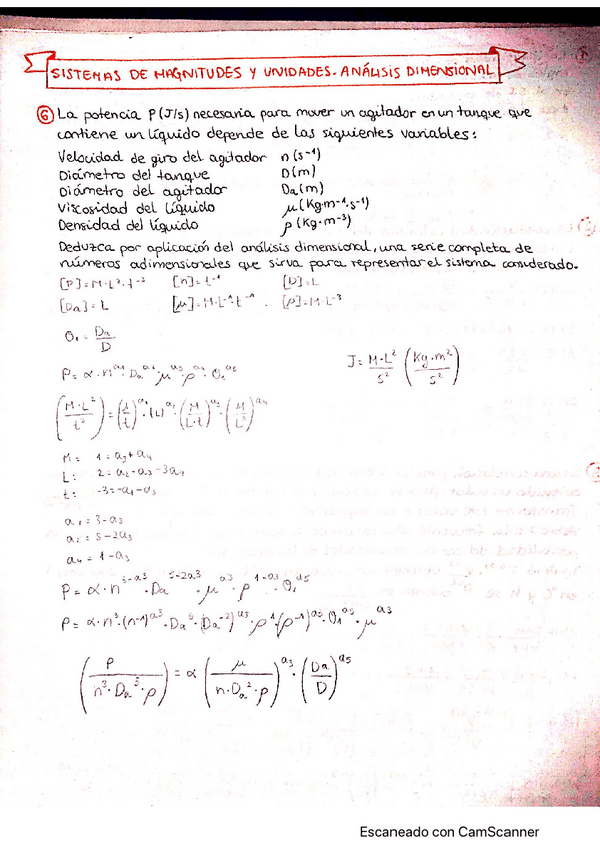 SISTEMAS DE MAGNITUDES Y UNIDADES. ANÁLISIS DIMENSIONAL
⑥ La potencia P(J/s) necesaria para mover un agitador en un tanque que
contiene un líquido depende de las siguientes variables:
Velocidad de giro del agitador n(s⁻¹)
Diámetro del tanque D(m)
Diámetro del agitador Da(m)
Viscosidad del líquido μ(Kg·m⁻¹·s⁻¹)
Densidad del líquido ρ(Kg·m⁻³)
Deduzca por aplicación del análisis dimensional, una serie completa de
números adimensionales que sirva para representar el sistema considerado.
[P]=M·L²·t⁻³ [n]=t⁻¹ [D]=L
[Da]=L [μ]=M·L⁻¹·t⁻¹ [ρ]=M·L⁻³
θ₁ = Da/D
J = M·L²/s² (Kg·m²/s²)
P = α·n^a1·Da^a2·μ^a3·ρ^a4·θ₁^a5
(M·L²/t³) = (1/t)^a1·(L)^a2·(M/L·t)^a3·(M/L³)^a4
M: 1 = a₃+a₄
L: 2 = a₂-a₃-3a₄
t: -3 = -a₁-a₃
a₁ = 3-a₃
a₂ = 5-2a₃
a₄ = 1-a₃
P = α·n^(3-a3)·Da^(5-2a3)·μ^a3·ρ^(1-a3)·θ₁^a5
P = α·n³·(n⁻¹)^a3·Da⁵·(Da⁻²)^a3·ρ¹·(ρ⁻¹)^a3·θ₁^a5·μ^a3
(P/n³·Da⁵·ρ) = α(μ/n·Da²·ρ)^a3·(Da/D)^a5
Escaneado con CamScanner